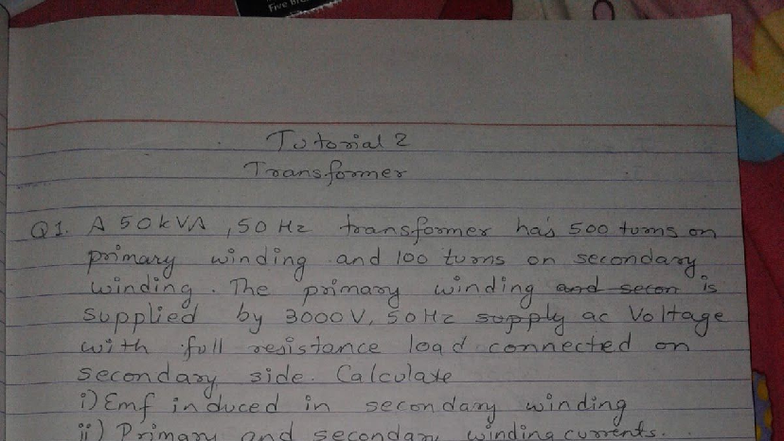 Five
Tutorial 2
Transformer
Q1. A 50kVA, 50 Hz transformer has 500 turns on
primary winding and 100 turns on secondary
winding. The primary winding and secon is
supplied by 3000V, 50Hz supply ac Voltage
with full resistance load connected on
secondary side. Calculate
i) Emf induced in secondary winding
ii) Primary and secondary winding currents.